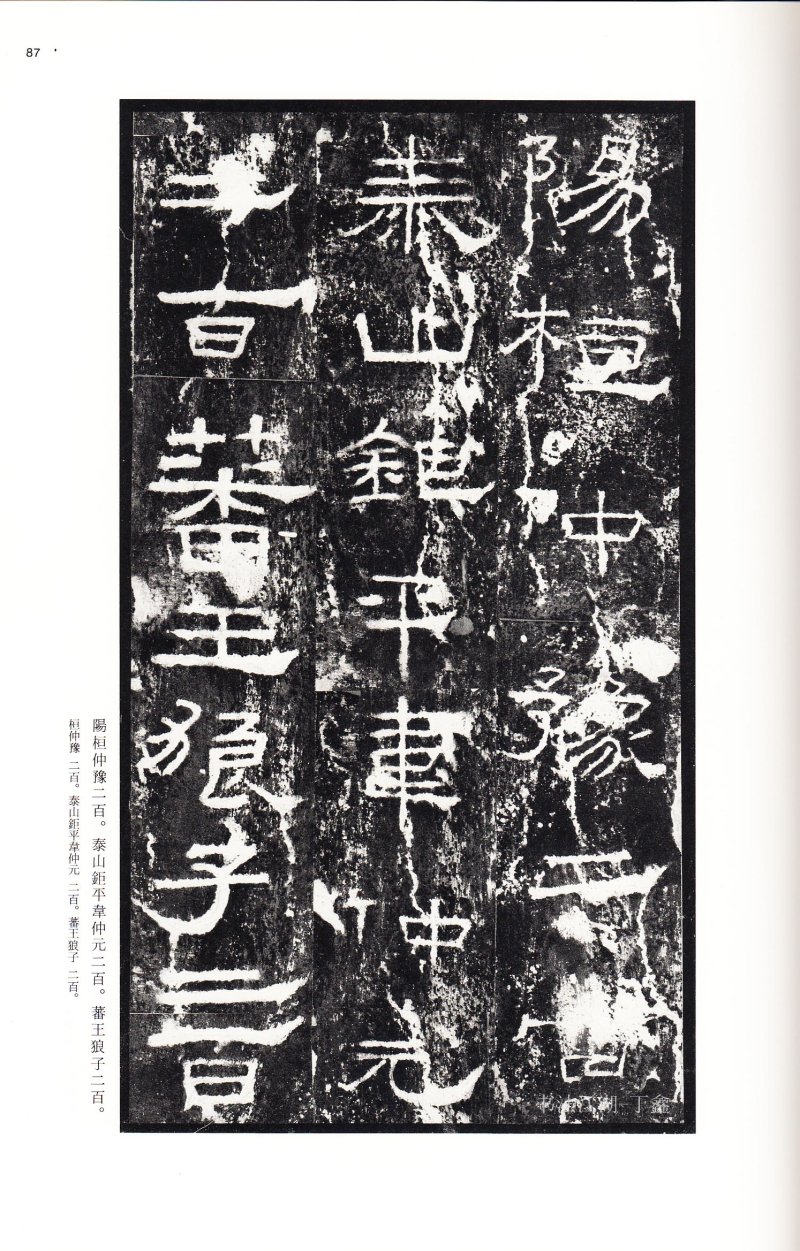 87
陽桓仲豫二百
泰山鉅平韋仲元
二百蕃王狼子二百
陽桓仲豫二百。泰山鉅平韋仲元二百。蕃王狼子二百。
桓仲豫 二百。泰山鉅平韋仲元 二百。蕃王狼子 二百。
丁鑫